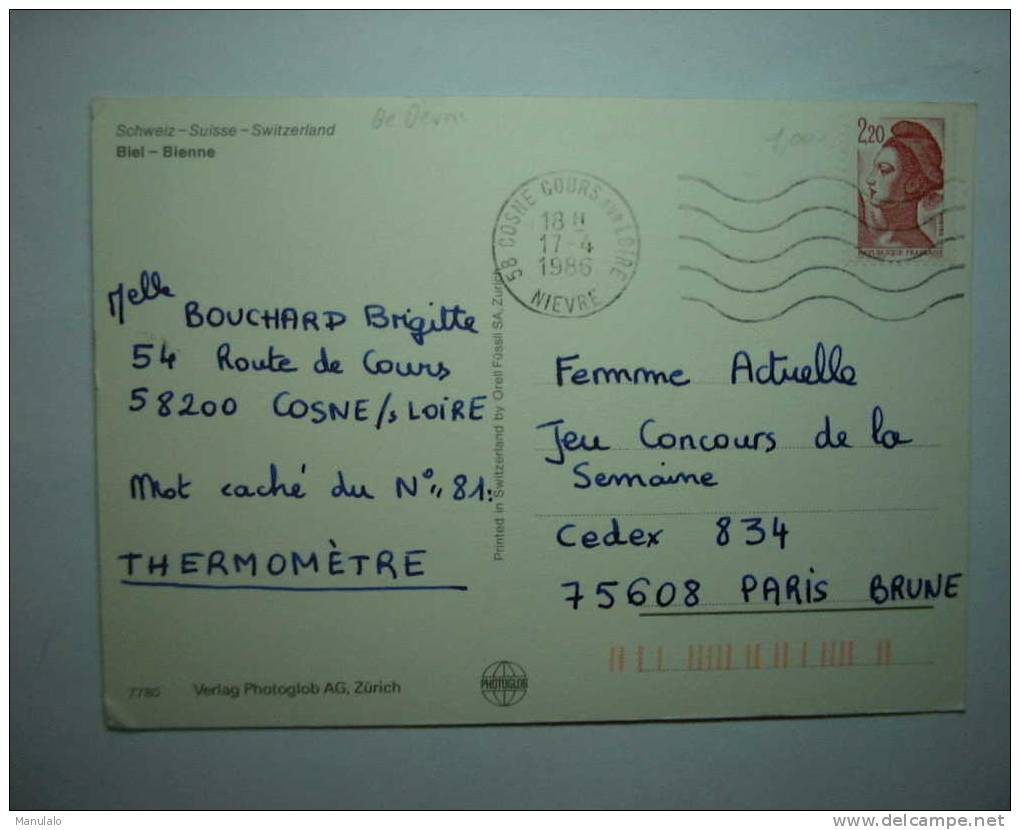 Schweiz – Suisse – Switzerland
Biel – Bienne
1,00
2,20
REPUBLIQUE FRANCAISE
58 COSNE COURS SUR LOIRE
18 H
17-4
1986
NIEVRE
Melle
BOUCHARD Brigitte
54 Route de Cours
58200 COSNE/s LOIRE
Mot caché du N° "81:
THERMOMÈTRE
Printed in Switzerland by Orell Füssli SA, Zürich
Femme Actuelle
Jeu Concours de la
Semaine
Cedex 834
75608 PARIS BRUNE
7780 Verlag Photoglob AG, Zürich
PHOTOGLOB
Manulalo
www.delcampe.net